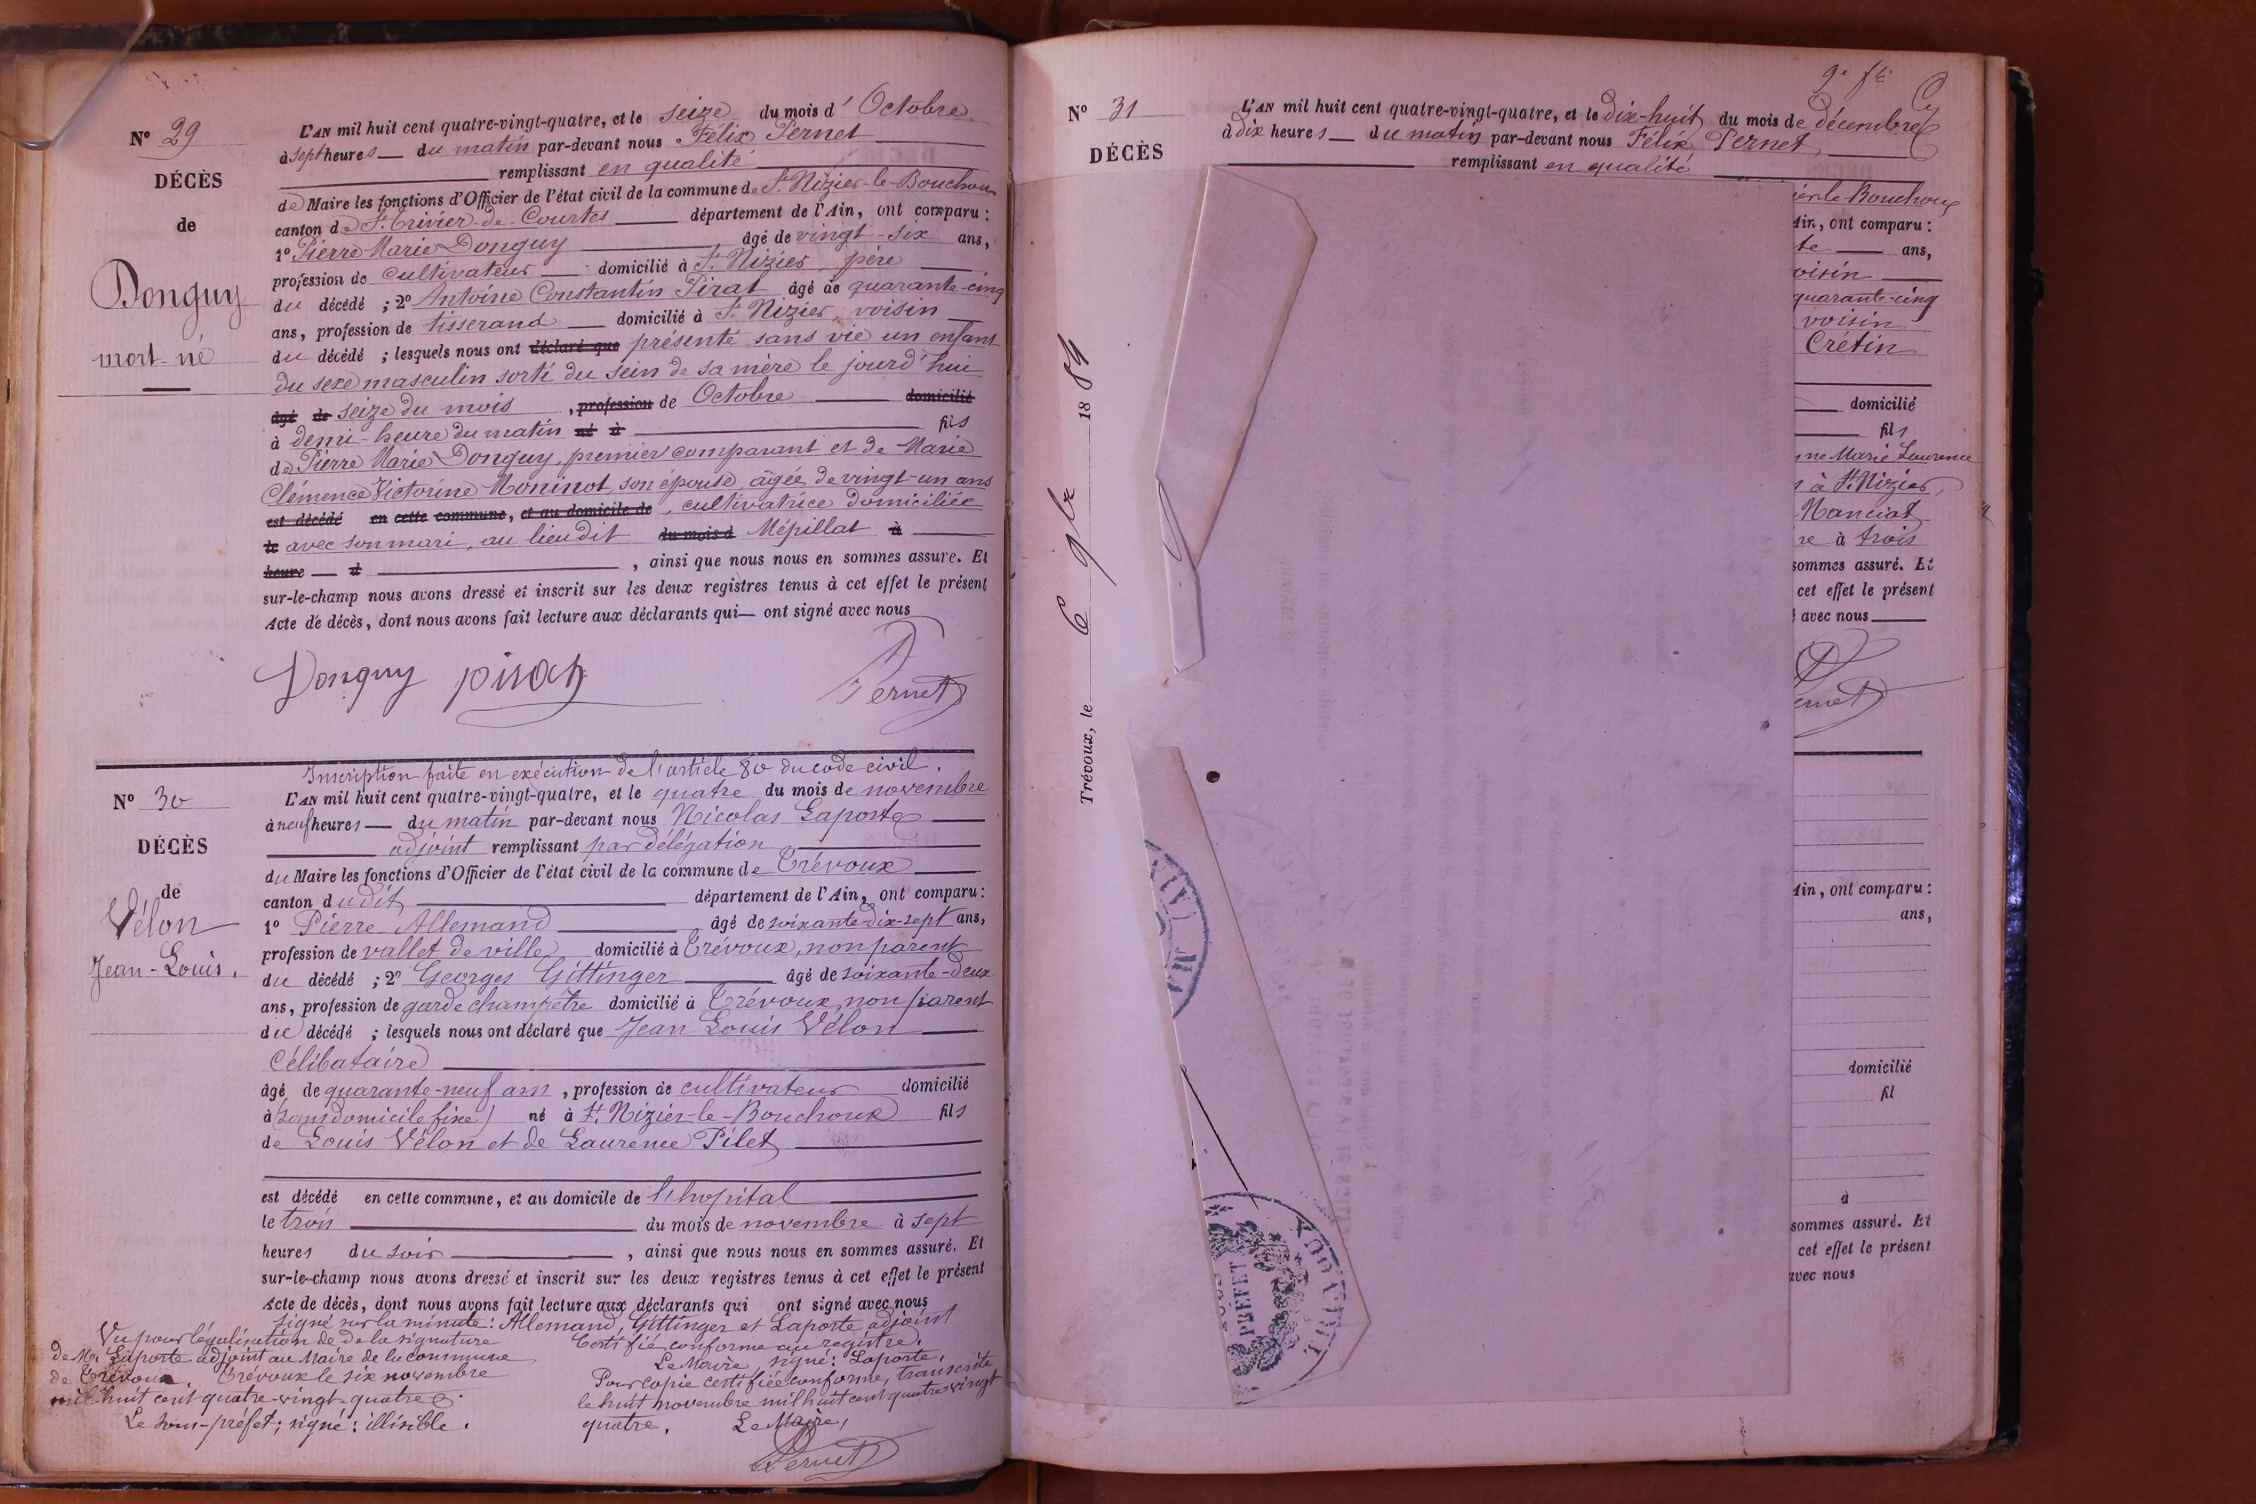 N° 29
DÉCÈS
de
Donguy
mort-né
L'AN mil huit cent quatre-vingt-quatre, et le seize du mois d'Octobre
à sept heures du matin par-devant nous Félix Pernet
remplissant en qualité
de Maire les fonctions d'Officier de l'état civil de la commune de St. Nizier-le-Bouchoux
canton de St. Trivier-de-Courtes département de l'Ain, ont comparu :
1° Pierre Marie Donguy âgé de vingt-six ans,
profession de cultivateur domicilié à St. Nizier père
du décédé ; 2° Antoine Constantin Pirat âgé de quarante-cinq
ans, profession de tisserand domicilié à St. Nizier, voisin
du décédé ; lesquels nous ont déclaré que présenté sans vie un enfant
du sexe masculin sorti du sein de sa mère le jourd'hui
âgé de seize du mois , profession de Octobre domicilié
à demi-heure du matin né à fils
de Pierre Marie Donguy, premier comparant et de Marie
Clémence Victorine Moninot, son épouse, âgée de vingt-un ans
est décédé en cette commune, et au domicile de , cultivatrice domiciliée
le avec son mari, au lieu dit du mois d Mépillat à
heure d , ainsi que nous nous en sommes assuré. Et
sur-le-champ nous avons dressé et inscrit sur les deux registres tenus à cet effet le présent
Acte de décès, dont nous avons fait lecture aux déclarants qui ont signé avec nous
Donguy pirat Pernet
N° 30
DÉCÈS
de
Vélon
Jean-Louis.
Inscription faite en exécution de l'article 80 du code civil.
L'AN mil huit cent quatre-vingt-quatre, et le quatre du mois de novembre
à neuf heures du matin par-devant nous Nicolas Laporte
adjoint remplissant par délégation
du Maire les fonctions d'Officier de l'état civil de la commune de Trévoux
canton dudit département de l'Ain, ont comparu :
1° Pierre Allemand âgé de soixante-dix-sept ans,
profession de vallet de ville domicilié à Trévoux, non parent
du décédé ; 2° Georges Gittinger âgé de soixante-deux
ans, profession de garde champêtre domicilié à Trévoux, non parent
du décédé ; lesquels nous ont déclaré que Jean Louis Vélon
Célibataire
âgé de quarante-neuf ans , profession de cultivateur domicilié
à (sans domicile fixe) né à St. Nizier-le-Bouchoux fils
de Louis Vélon et de Laurence Pilet
est décédé en cette commune, et au domicile de l'hopital
le trois du mois de novembre à sept
heures du soir , ainsi que nous nous en sommes assuré. Et
sur-le-champ nous avons dressé et inscrit sur les deux registres tenus à cet effet le présent
Acte de décès, dont nous avons fait lecture aux déclarants qui ont signé avec nous
signé sur la minute : Allemand, Gittinger et Laporte adjoint
Vu pour légalisation de de la signature
de Mr. Laporte adjoint au Maire de la commune
de Trévoux. Trévoux le six novembre
mil huit cent quatre-vingt-quatre.
Le sous-préfet ; signé : illisible.
Certifié conforme au registre.
Le Maire, signé : Laporte.
Pour copie certifiée conforme, transcrite
le huit novembre mil huit cent quatre-vingt
quatre. Le Maire,
Pernet
N° 31
DÉCÈS
L'AN mil huit cent quatre-vingt-quatre, et le dix-huit du mois de décembre
à dix heures du matin par-devant nous Félix Pernet,
remplissant en qualité
ier-le-Bouchoux
Ain, ont comparu :
te ans,
voisin
quarante-cinq
voisin
Crétin
domicilié
fils
nne Marie Laurence
à St. Nizier,
Manciat
re à trois
sommes assuré. Et
cet effet le présent
avec nous
ernet
Trévoux, le 6 9bre 1884
SOUS PRÉFET
TRÉVOUX
Ain, ont comparu :
ans,
domicilié
fil
à
sommes assuré. Et
cet effet le présent
avec nous